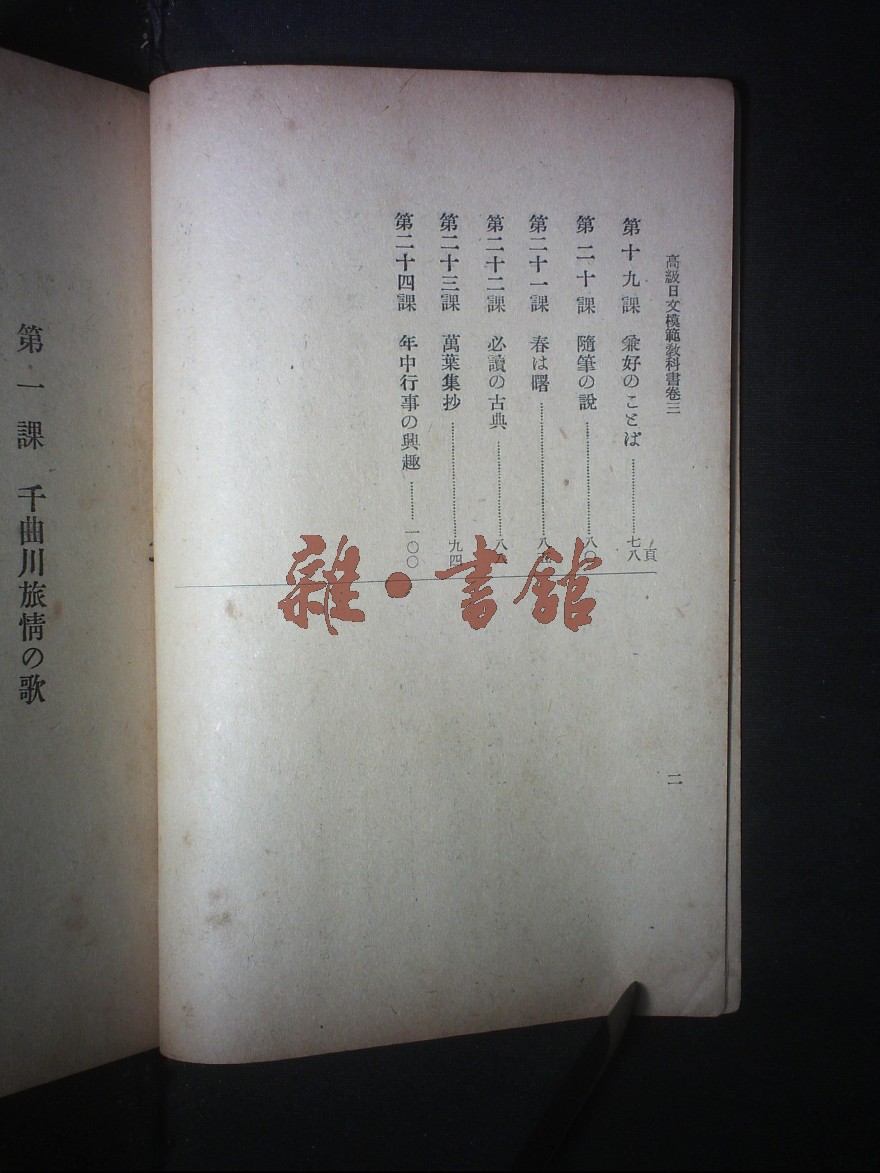 高級日文模範敎科書卷三
頁
第十九課 兼好のことば……七八
第二十課 隨筆の說……八〇
第二十一課 春は曙……八
第二十二課 必讀の古典……八
第二十三課 萬葉集抄……九四
第二十四課 年中行事の興趣……一〇〇
二
第一課 千曲川旅情の歌
雜·書館